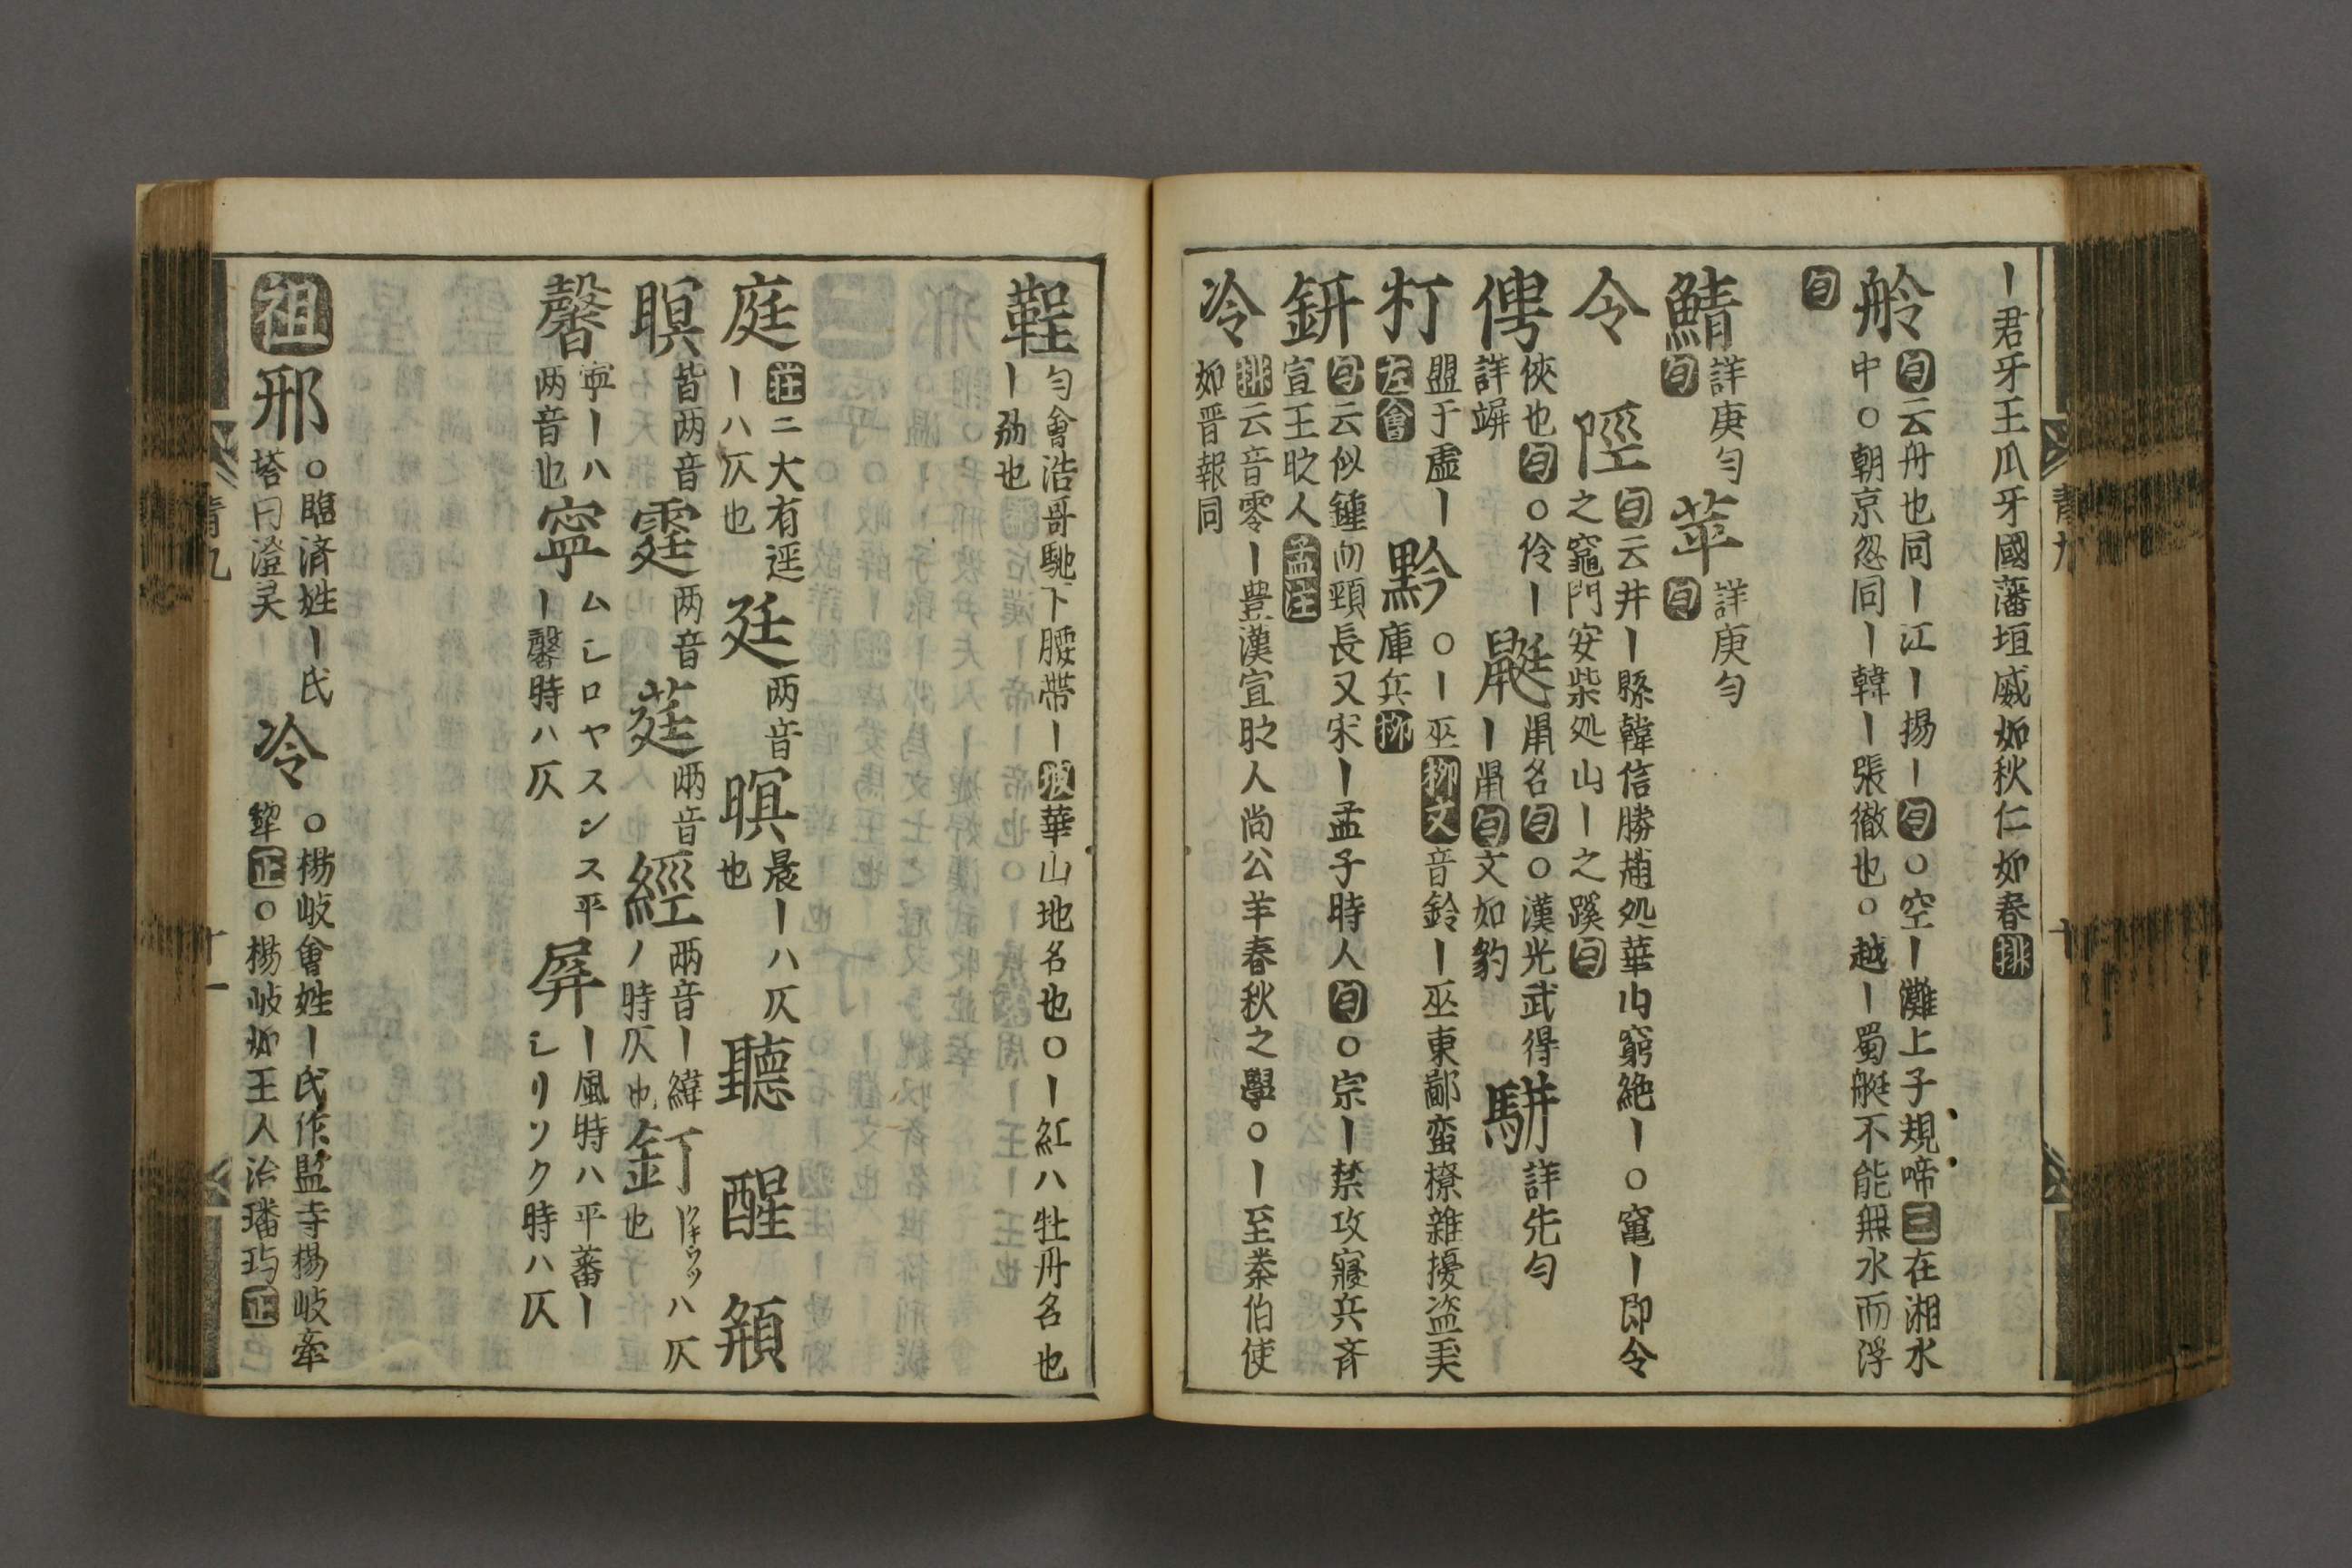 丨君牙王瓜牙國藩垣威如秋仁如春排
舲
旬云舟也同丨江丨揚丨旬○空丨灘上子規啼三在湘水
中○朝京忽同丨韓丨張徹也○越丨蜀艇不能無水而浮
旬
鯖
詳庚勻
旬
苹
詳庚勻
旬
令
陘
旬云井丨縣韓信勝趙処華内窮絶丨○竃丨即令
之竈門安柴処山丨之蹊旬
俜
俠也旬○伶丨
詳竮
鼮
鼠名旬○漢光武得
丨鼠旬文如豹
駢
詳先勻
朾
盟于虛丨
左會
黔
○丨巫柳文音鈴丨巫東鄙蛮獠雜擾盗
庫兵柳
鈃
旬云似鍾而頸長又宋丨孟子時人旬○宗丨禁攻寢兵斉
宣王時人孟注
冷
排云音零丨豊漢宣时人尚公羊春秋之學○丨至秦伯使
如晋報同
鞓
勻會浩哥馳下腰帯丨坡華山地名也○丨紅ハ牡丹名也
丨劦也
庭
荘二大有逕
丨ハ仄也
廷
两音
暝
晨丨ハ仄
也
聽
醒
顊
瞑
皆两音
霆
两音
莛
两音
經
两音丨緯
ノ時仄也
釘
ハ仄
也
馨
寧丨ハ
两音也
寧
ムシロヤスンス平
丨馨時ハ仄
屏
丨風時ハ平蕃丨
シリソク時ハ仄
祖
邢
○臨済姓丨氏
塔曰澄灵
冷
○楊岐會姓丨氏作監寺楊岐牽
犂正○楊岐如王人治璠玙正
青九
十
青九
十一